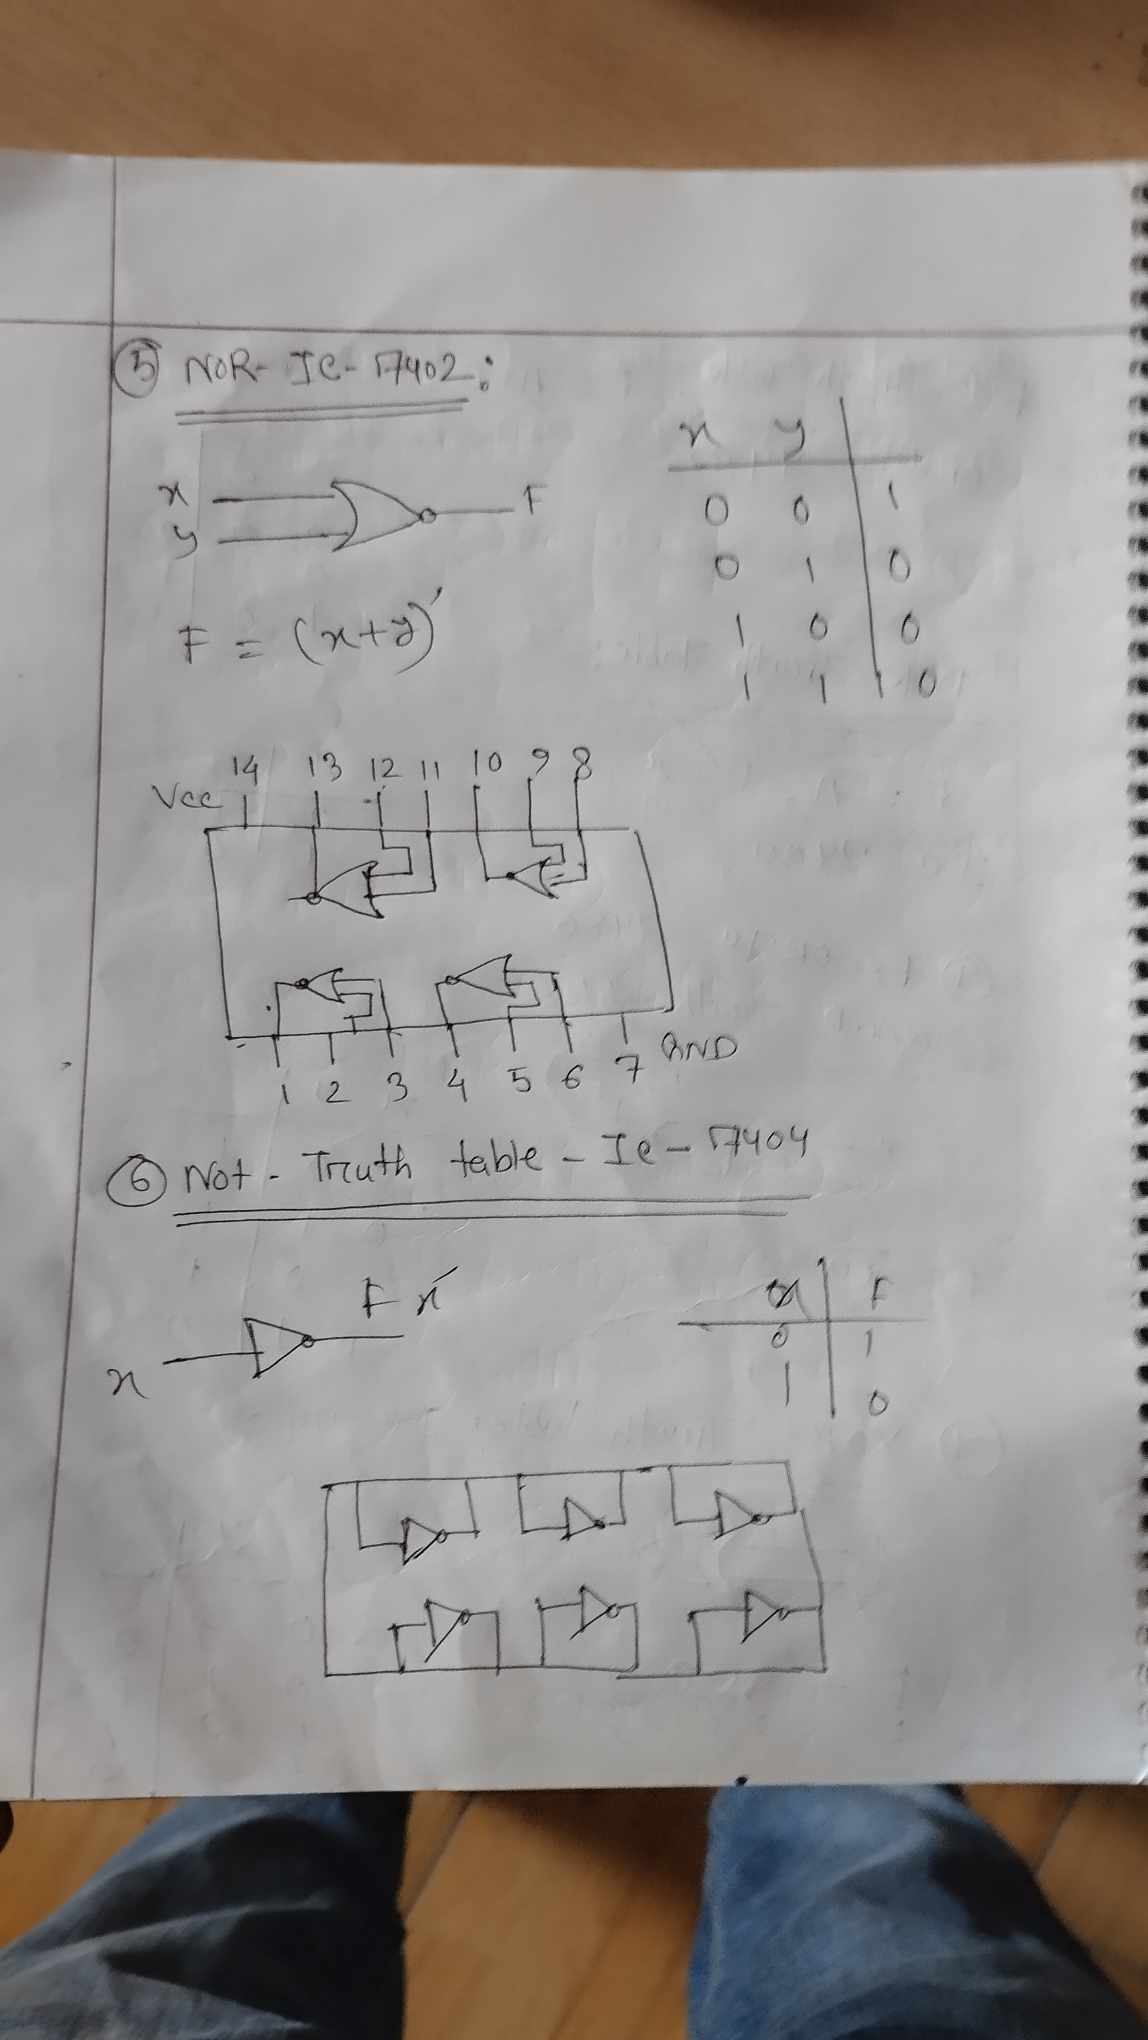 ⑤ NOR- IC- 7402:
x y
x F
y
0 0 1
0 1 0
1 0 0
1 1 0
F = (x+y)'
14 13 12 11 10 9 8
Vcc
GND
1 2 3 4 5 6 7
⑥ Not - Truth table - IC - 7404
F x'
x
x F
0 1
1 0